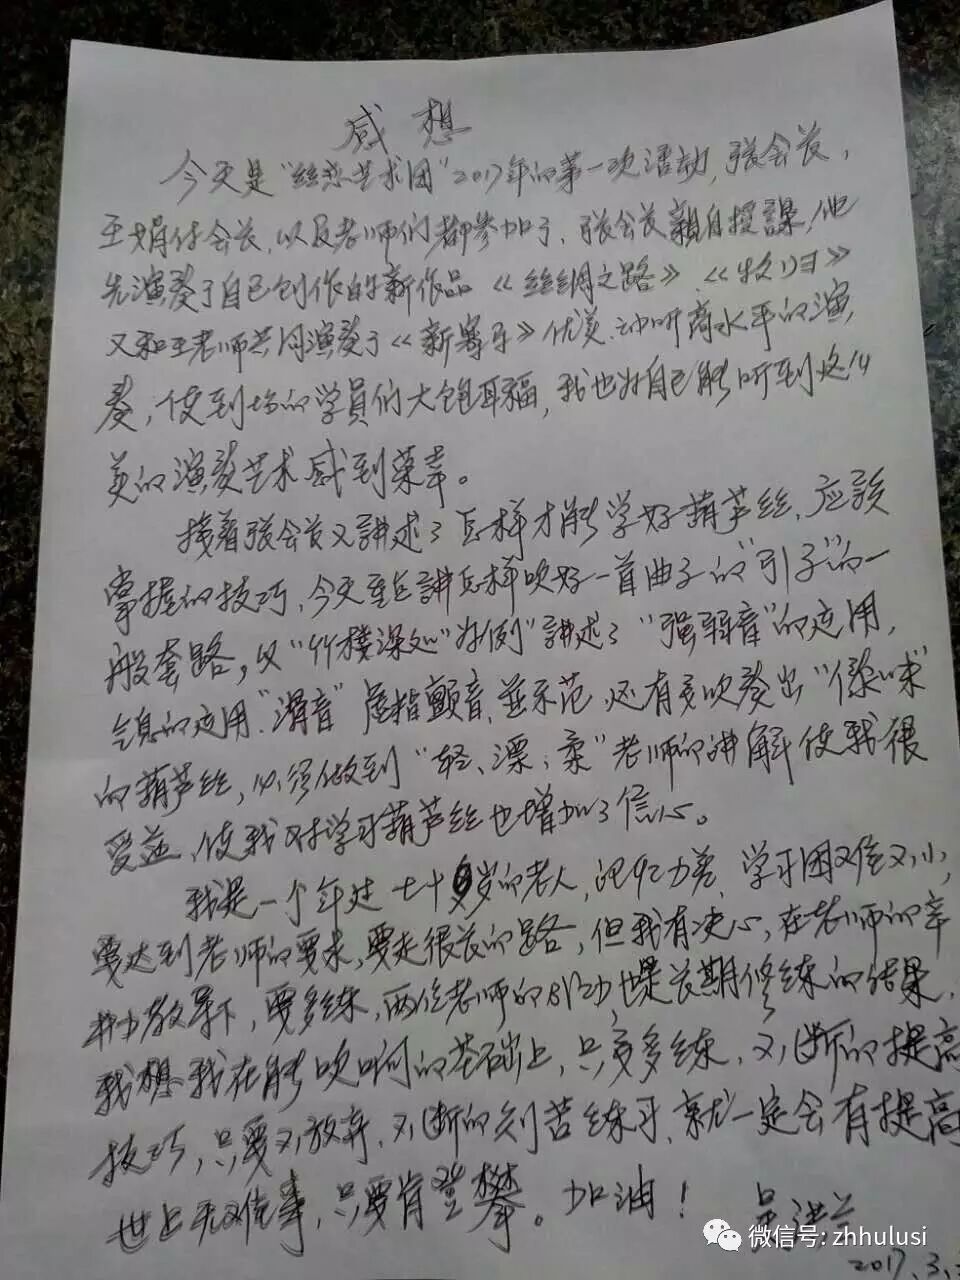 感想
今天是"丝恋艺术团"2017年的第一次活动,张会长,
王娟付会长,以及老师们都参加了,张会长亲自授課,他
先演奏了自己创作的新作品《丝绸之路》、《牧归》
又和王老师共同演奏了《新寡妇》优美、动听高水平的演
奏,使到场的学員们大饱耳福,我也为自己能听到这么
美的演奏艺术感到荣幸。
接着张会长又講述了怎样才能学好葫芦丝,应該
掌握的技巧,今天重点講怎样吹好一首曲子的"引子"的一
般套路,以"竹楼深处"为例"講述了"强弱音"的应用,
气息的应用"滑音"虚指颤音,並示范,还有要吹奏出"傣味"
的葫芦丝,必须做到"轻、漂、柔"老师的讲解使我很
受益,使我对学习葫芦丝也增加了信心。
我是一个年过七十岁的老人,记忆力差,学习困难不小,
要达到老师的要求,要走很长的路,但我有决心,在老师的辛
勤教导下,要多练,两位老师的成功也是长期修练的结果,
我想我在能吹响的基础上,只要多练,不断的提高
技巧,只要不放弃,不断的刻苦练习,就一定会有提高
世上无难事,只要肯登攀。加油!
吴洪兰
2017.3.
微信号: zhhulusi